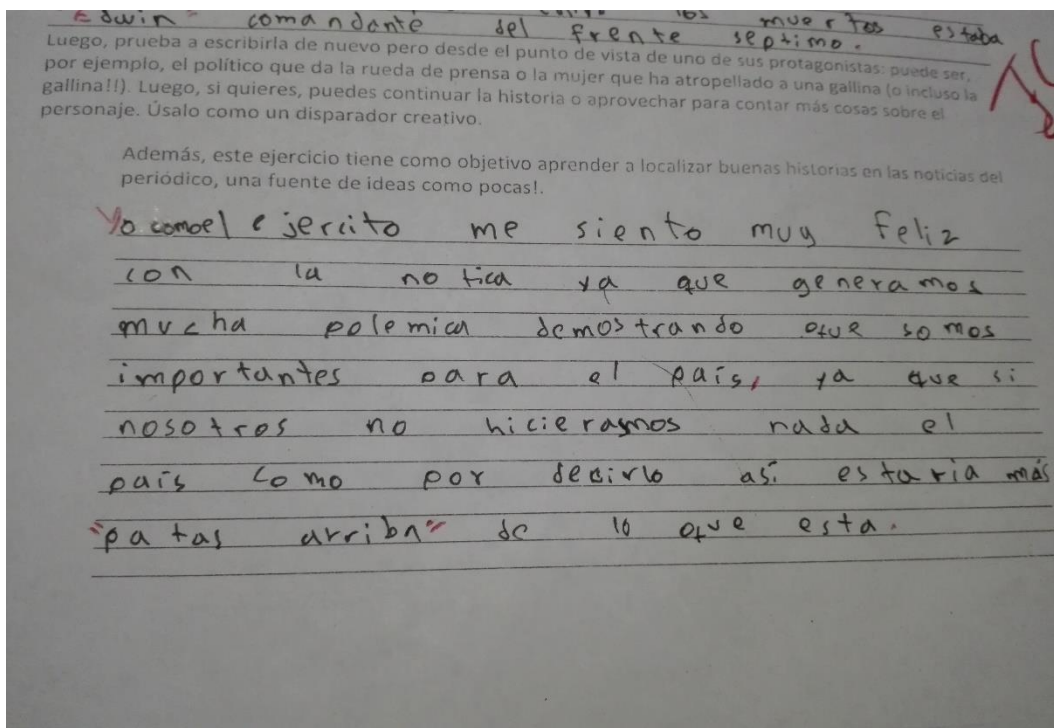 Edwin comandante del frente septimo. los muertos estaba
Luego, prueba a escribirla de nuevo pero desde el punto de vista de uno de sus protagonistas: puede ser,
por ejemplo, el político que da la rueda de prensa o la mujer que ha atropellado a una gallina (o incluso la
gallina!!). Luego, si quieres, puedes continuar la historia o aprovechar para contar más cosas sobre el
personaje. Úsalo como un disparador creativo.
Además, este ejercicio tiene como objetivo aprender a localizar buenas historias en las noticias del
periódico, una fuente de ideas como pocas!.
Yo como el ejercito me siento muy feliz
con la notica ya que generamos
mucha polemica demostrando que somos
importantes para el país, ya que si
nosotros no hicieramos nada el
país como por decirlo así estaria más
"patas arriba" de lo que esta.